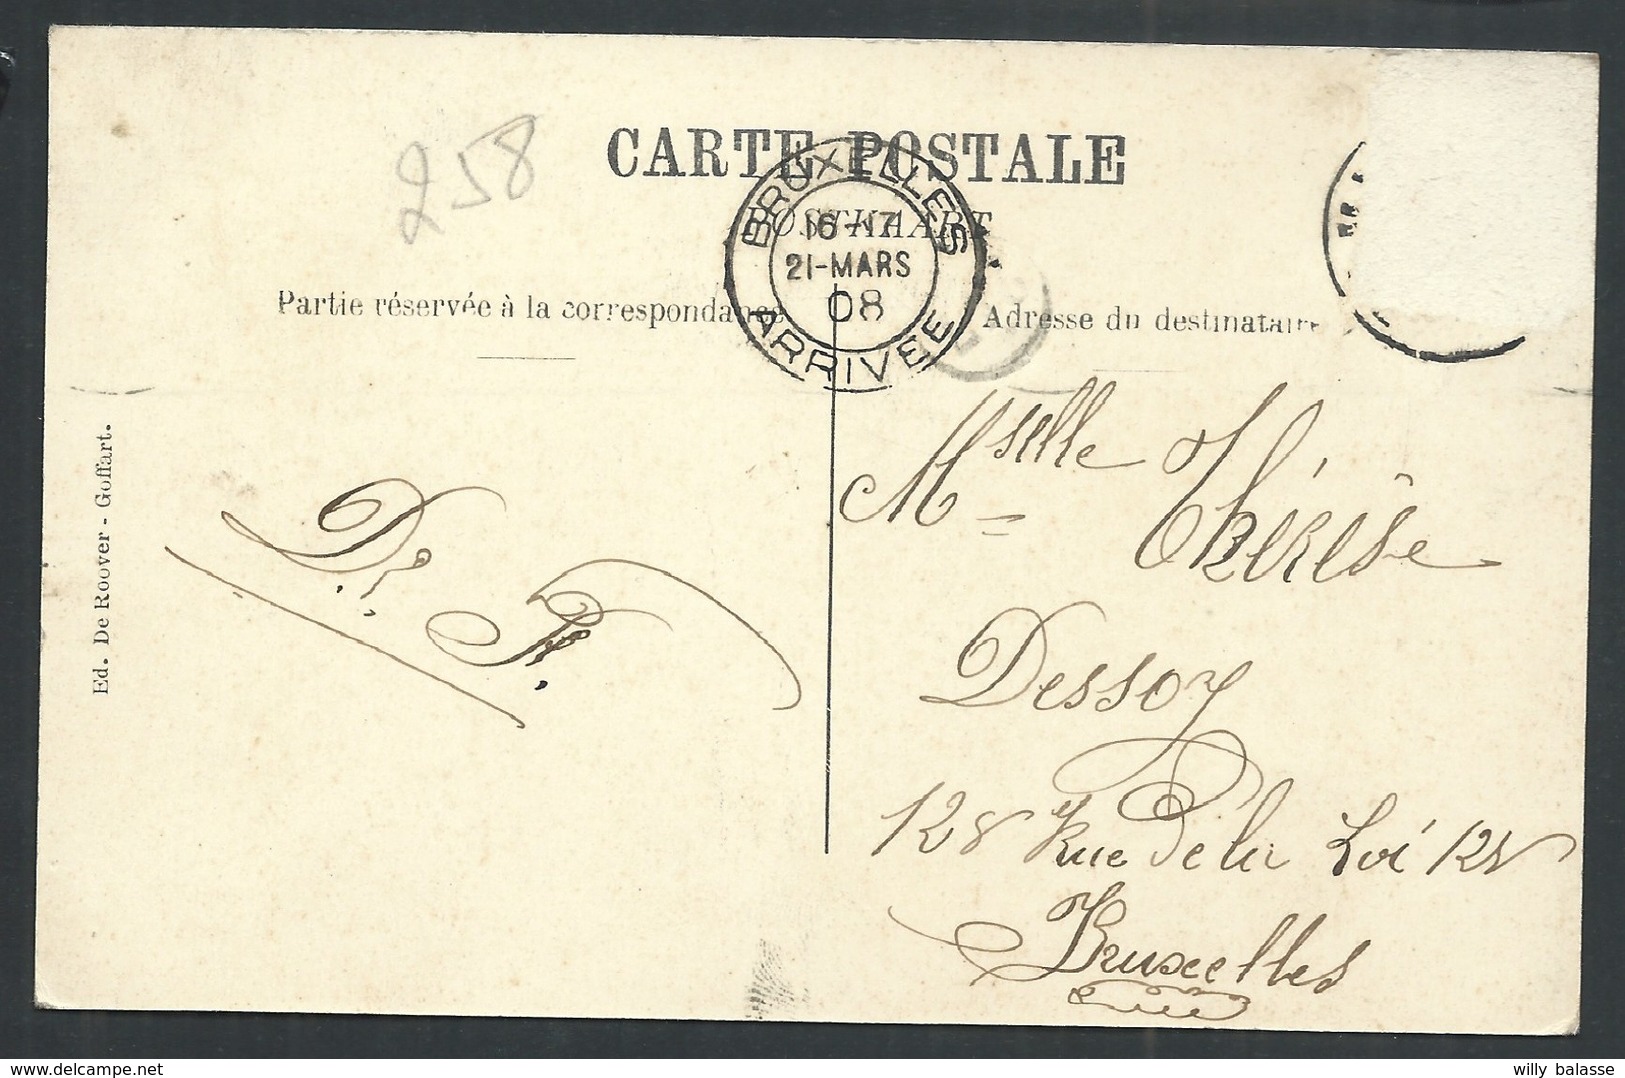 258
CARTE POSTALE
POSTKAART
BRUXELLES
16-17
21-MARS
08
ARRIVEE
Partie réservée à la correspondance
Adresse du destinataire
Ed. De Roover - Goffart.
Mselle Thérèse
Dessoy
128 Rue de la Loi 128
Bruxelles
Dr. F.
willy balasse